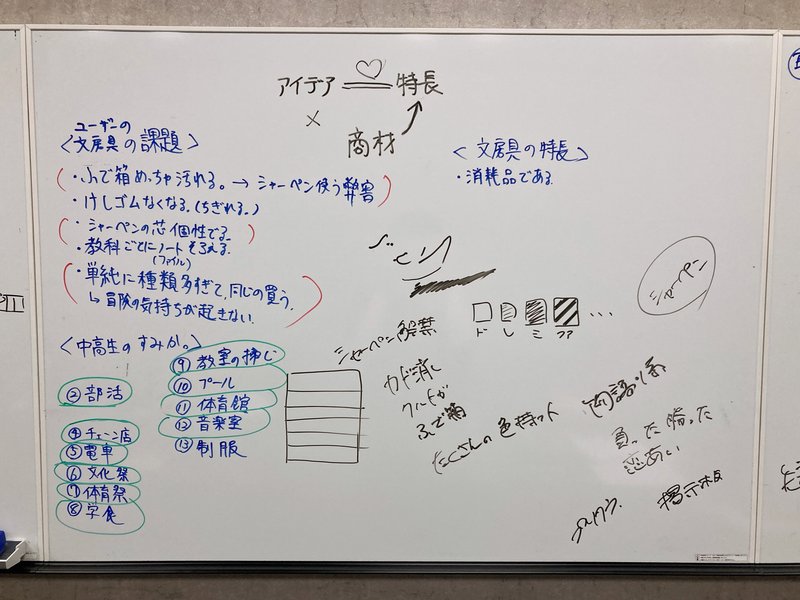 アイデア ♡ 特長
×
商材
ユーザーの
〈文房具の課題〉
・ふで箱めっちゃ汚れる。→ シャーペン使う弊害
・けしゴムなくなる。(ちぎれる。)
・シャーペンの芯個性でる。
・教科ごとにノートそろえる。
(ファイル)
・単純に種類多すぎて、同じの買う。
↳冒険の気持ちが起きない。
〈文房具の特長〉
・消耗品である。
シャーペン
ド レ ミ ファ ...
〈中高生のすみか。〉
②部活
④チェーン店
⑤電車
⑥文化祭
⑦体育祭
⑧学食
⑨教室の
⑩プール
⑪体育館
⑫音楽室
⑬制服
シャーペン解禁
カド消し
ふで箱
たくさんの色持った
負った勝った
恋あい
掲示板